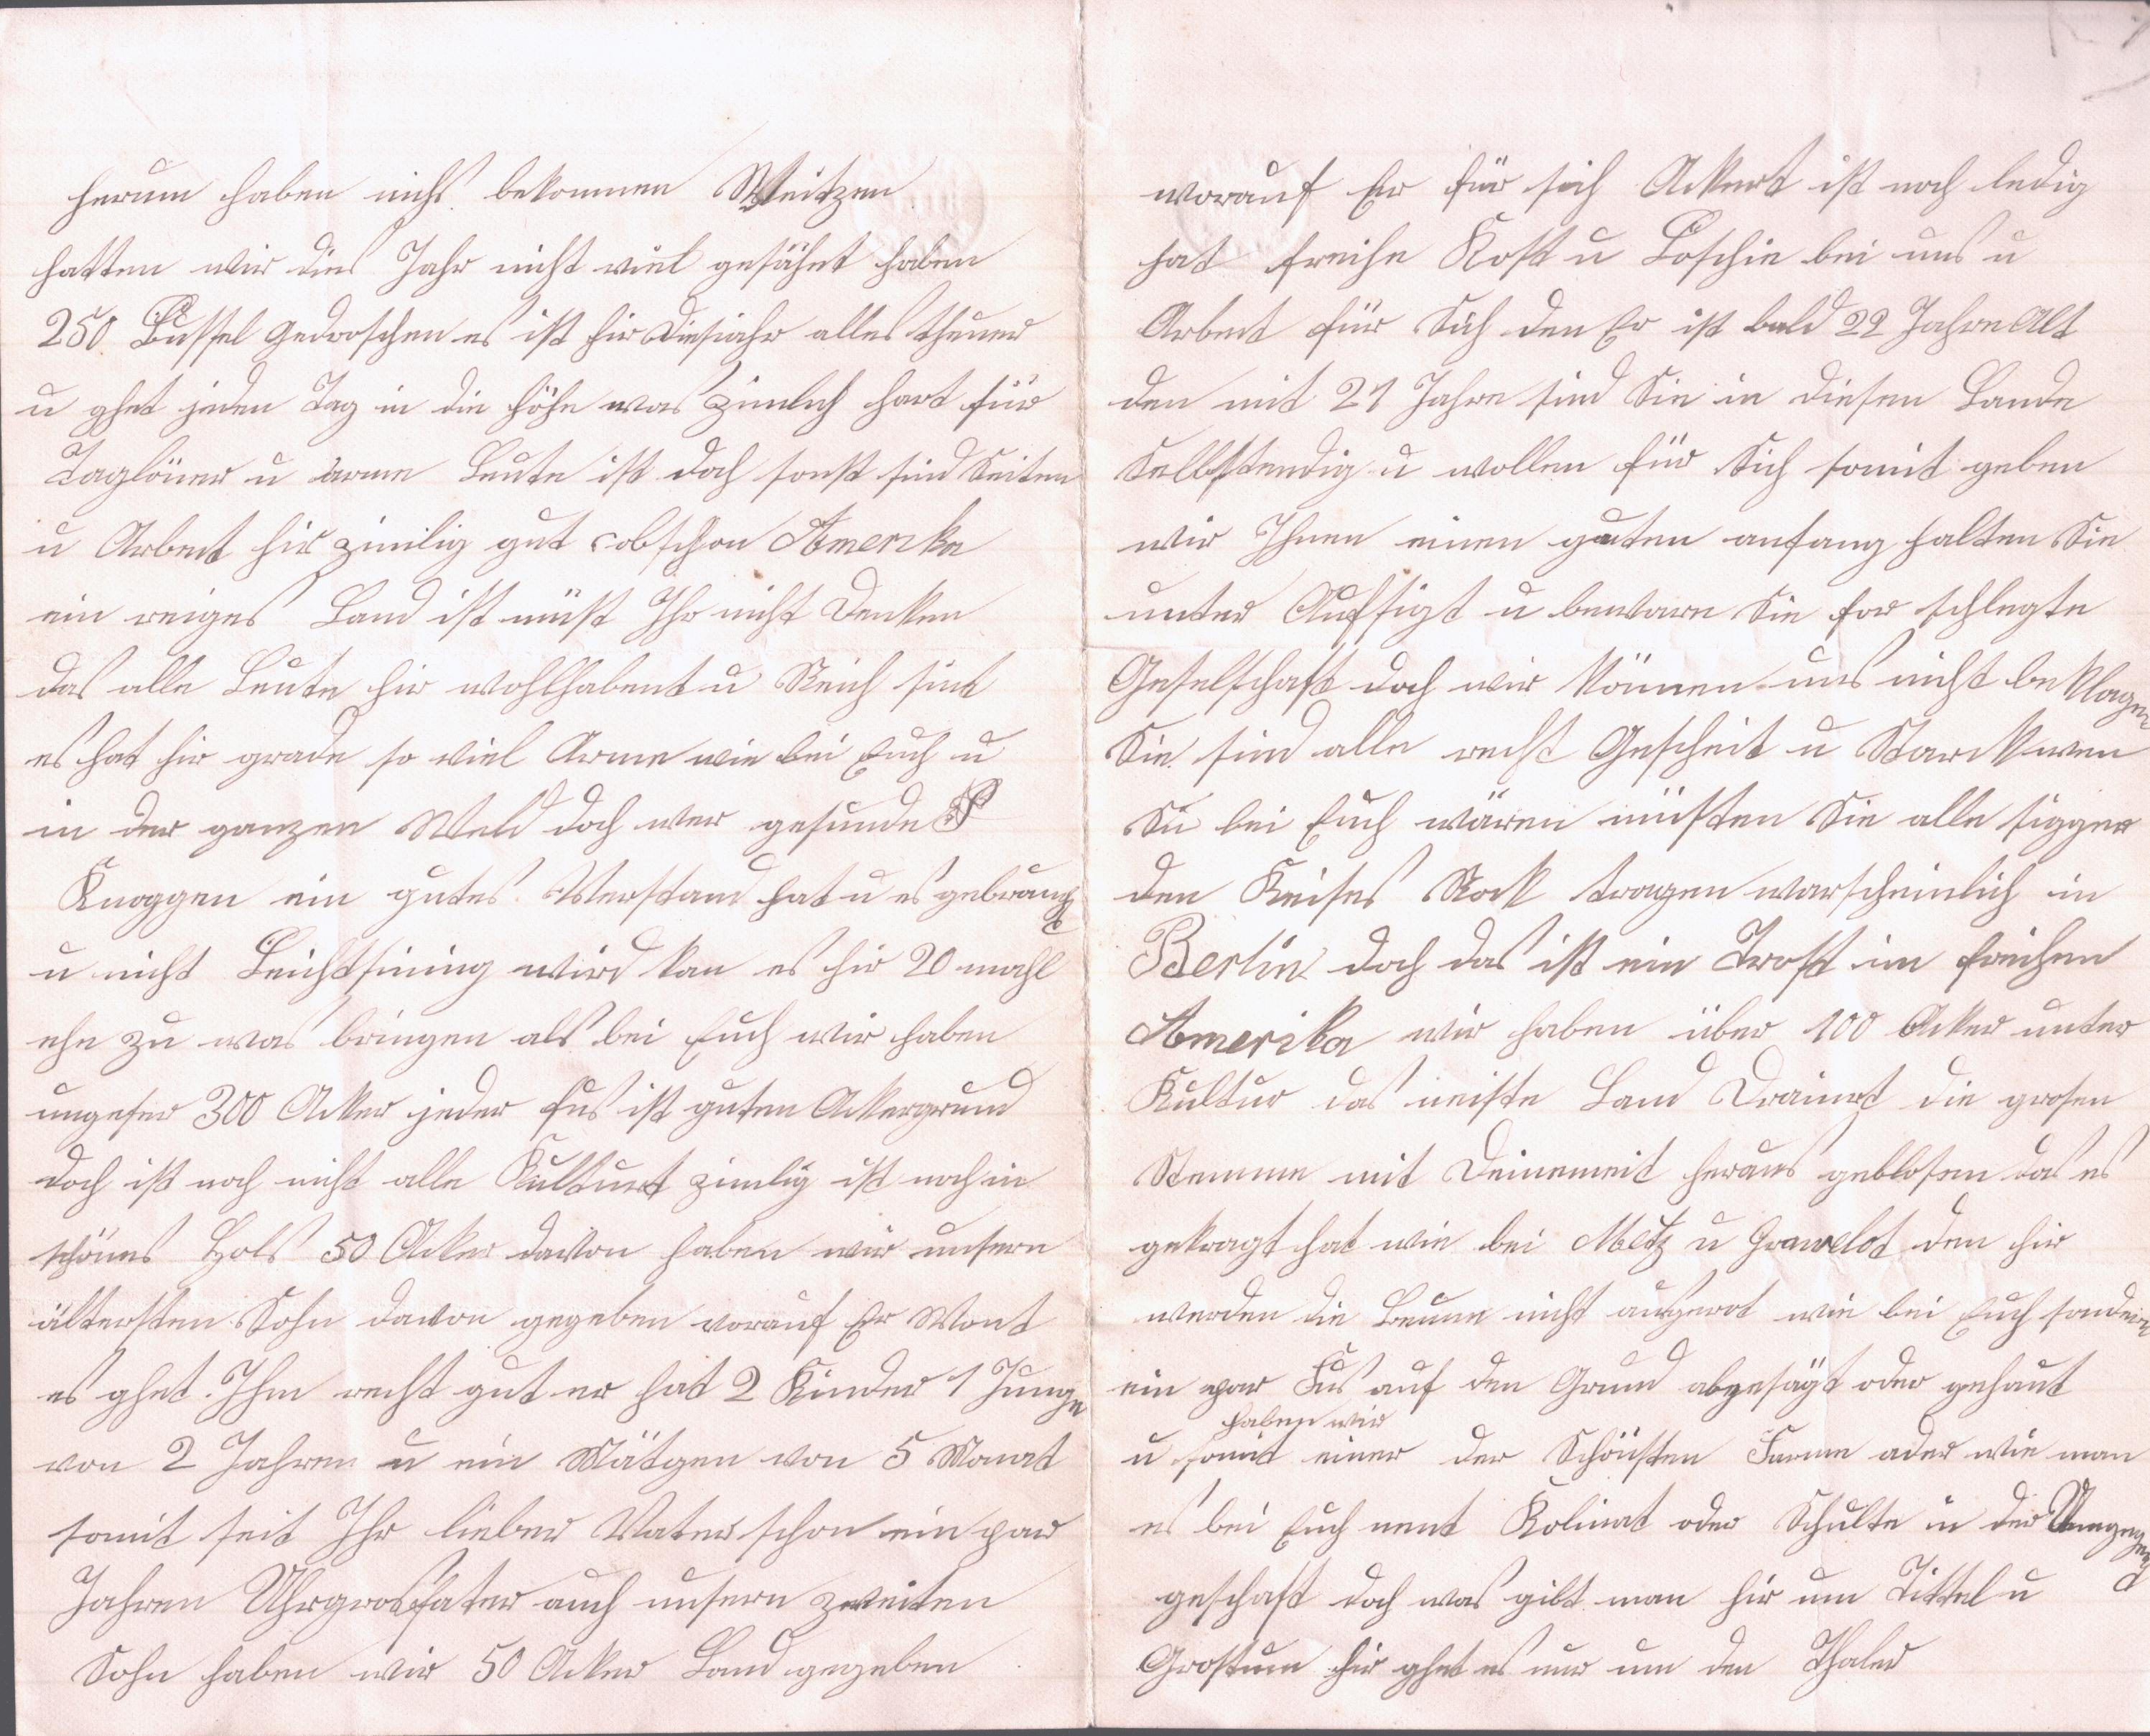 herum haben nichs bekommen Weitzen
hatten wir dies Jahr nicht viel gesähet haben
250 Bussel gedroschen es ist hir diesjahr alles theuer
u ghet jeden Tag in die höhe was zimlich hart für
Taglöner u arme Leute ist doch sonst sind Zeiten
u Arbeit hir zimlig gut obschon Amerika
ein reiges Land ist müst Ihr nicht Denken
das alle Leute hir wohlhabent u Reich sint
es hat hir grade so viel Arme wie bei Euch u
in der ganzen Weld doch wer gesunde
Knoggen ein gutes Verstand hat u es gebraucht
u nicht Leichtsining wird kan es hir 20 mahl
ehe zu was bringen als bei Euch wir haben
ungefer 300 Acker jeder fus ist guten Ackergrund
doch ist noch nicht alle Kulturt zimlig ist noch in
schönes Hols 50 Acker davon haben wir unsern
ältersten Sohn davon gegeben worauf Er Wont
es ghet Ihm recht gut er hat 2 Kinder 1 Junge
von 2 Jahren u ein Mätgen von 5 Monat
somit seit Ihr lieber Vater schon ein par
Jahren Uhrgrosfater auch unsern zweiten
Sohn haben wir 50 Acker Land gegeben
worauf Er für sich Ackert ist noch ledig
hat freihe Kost u Loschie bei uns u
Arbeit für Sich den Er ist bald 22 Jahre Alt
den mit 21 Jahre sind Sie in diesen Lande
Selbstendig u wollen für Sich somit geben
wir Ihnen einen guten anfang halten Sie
unter Aufsigt u bewaren Sie for schlegte
Geselschaft doch wir können uns nicht beklagen
Sie sind alle recht Gescheit u Starck wen
Sie bei Euch wären müsten Sie alle sigger
den Keises Rock tragen warscheinlich in
Berlin doch das ist ein Trost im freihen
Amerika wir haben über 100 Acker unter
Kultur das meiste Land Drainirt die grosen
Stemme mit Deinemeit heraus geblosen das es
gekragt hat wie bei Metz u Grawelot den hir
werden die Beume nicht ausgerot wie bei Euch sondern
ein par Fus auf den Grund abgesägt oder gehaut
haben wir
u somit einer der Schönsten Farme oder wie man
es bei Euch nent Kolinat oder Schulte in der Umgegend
geschaft doch was gibt man hir um Tittel u
Grostum hir ghet es nur um den Thaler